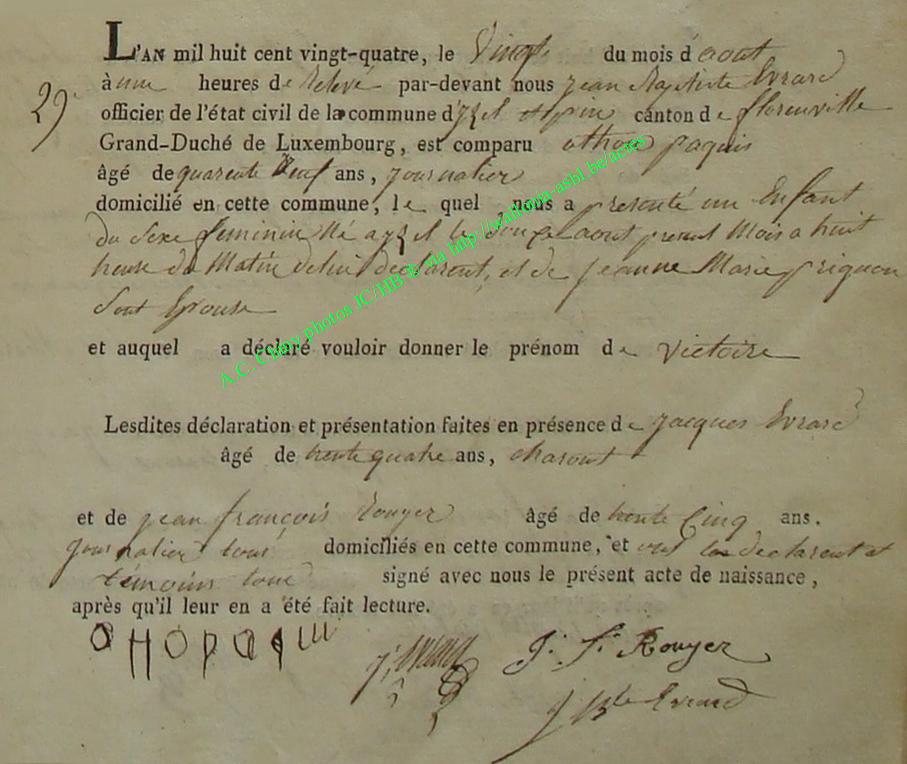 L'AN mil huit cent vingt-quatre, le Vingt du mois d'aout
29e
à une heures de Relevé par-devant nous jean Baptiste Evrard
officier de l'état civil de la commune d'jzel canton de florenville
Grand-Duché de Luxembourg, est comparu othon paquis
âgé de quarente Neuf ans, journalier
domicilié en cette commune, le quel nous a presenté un Enfant
du Sexe feminin Né a jzel le aout present Mois a huit
heure du Matin de lui declarent, et de jeanne Marie prignon
Sont Epouse
et auquel a déclaré vouloir donner le prénom de victoire
Lesdites déclaration et présentation faites en présence de jacques Evrard
âgé de trente quatre ans, charont
et de jean françois Rouyer âgé de trente Cinq ans.
journalier tous domiciliés en cette commune, et ont les declarent et
témoins tous signé avec nous le présent acte de naissance,
après qu'il leur en a été fait lecture.
j: Evrard J: F: Rouyer
J Bte Evrard
A.C. Chiny photos JC/HB © via http://wanham-asbl.be/actes